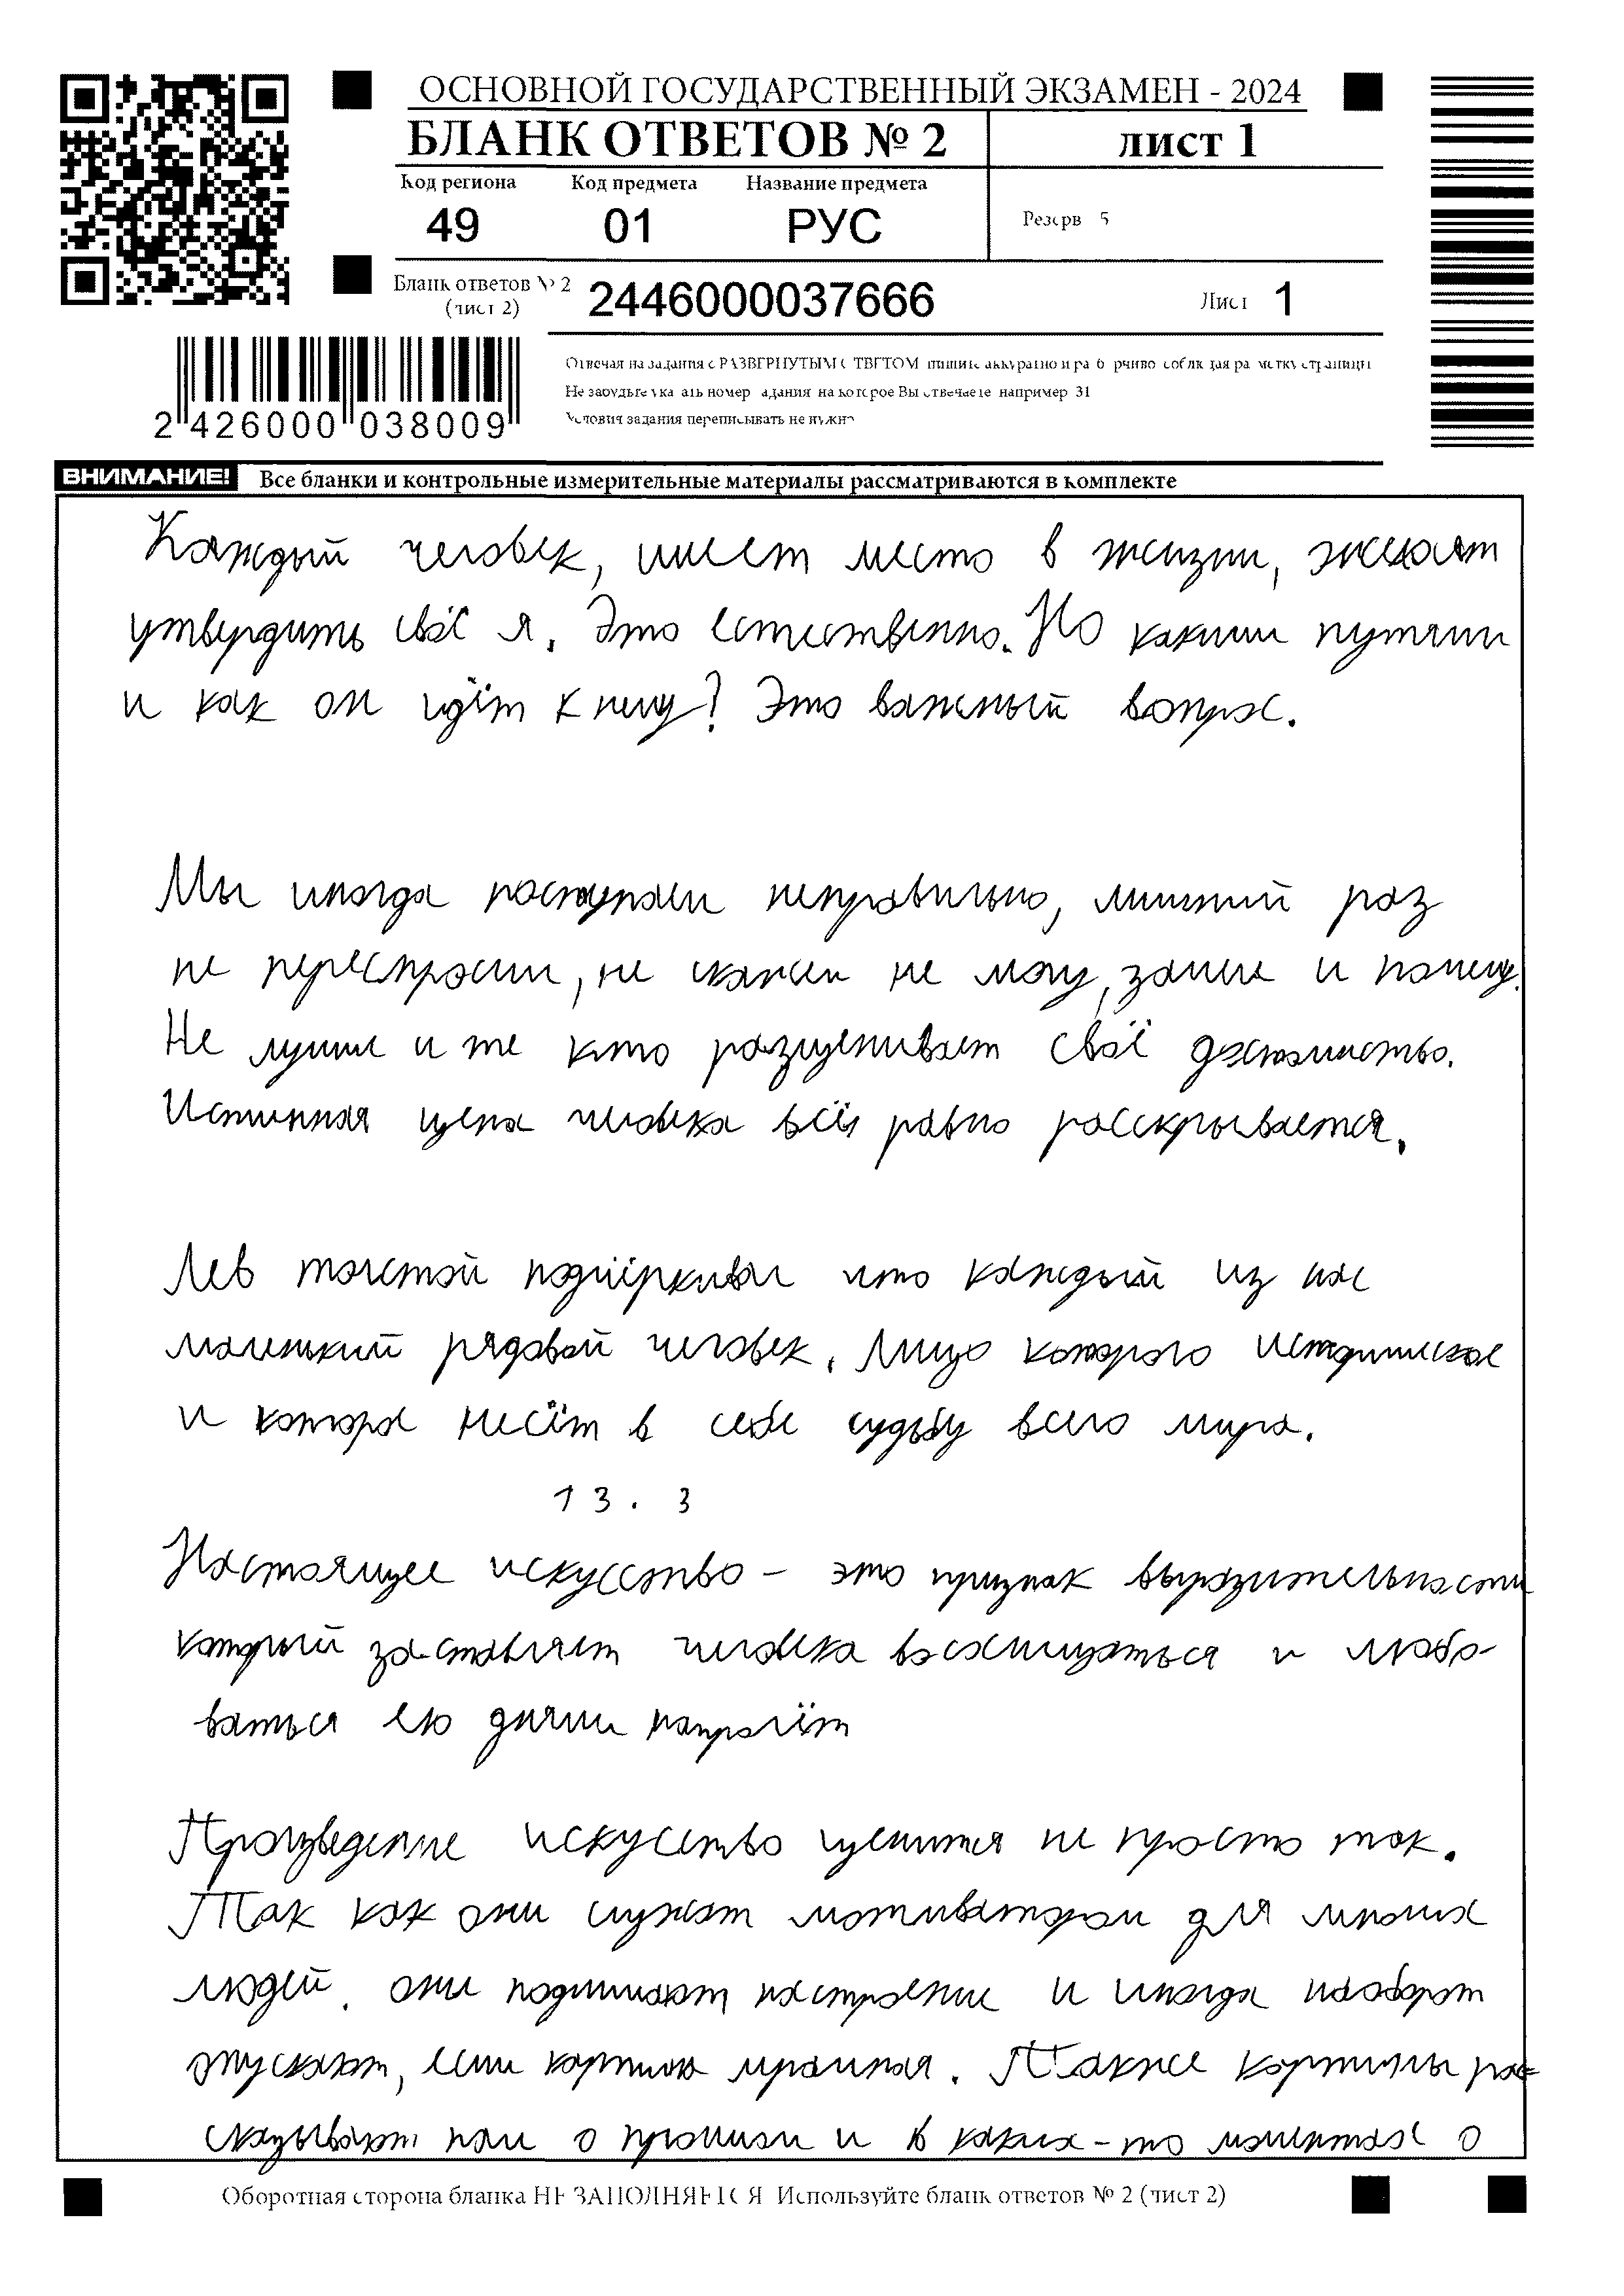 ОСНОВНОЙ ГОСУДАРСТВЕННЫЙ ЭКЗАМЕН - 2024
БЛАНК ОТВЕТОВ № 2
лист 1
Код региона Код предмета Название предмета
49 01 РУС
Резерв 5
Бланк ответов № 2
(лист 2)
2446000037666
Лист 1
2 426000 038009
Отвечая на задания с РАЗВЕРНУТЫМ ОТВЕТОМ пишите аккуратно и разборчиво соблюдая разметку страницы
Не забудьте указать номер задания на которое Вы отвечаете например 31
Условия задания переписывать не нужно
ВНИМАНИЕ! Все бланки и контрольные измерительные материалы рассматриваются в комплекте
Каждый человек, имеет место в жизни, желает
утвердить своё я. Это естественно. Но какими путями
и как он идёт к нему? Это важный вопрос.
Мы иногда поступаем неправильно, лишний раз
не переспросим, не скажем не могу, зачем и почему.
Не лучше и те кто разценивает своё достоинство.
Истинная цена человека всё равно расскрывается.
Лев толстой подчёркивал что каждый из нас
маленький рядовой человек. Лицо которого историческое
и которое несёт в себе судьбу всего мира.
13.3
Настоящее искусство - это признак выразительности
который заставляет человека восхищаться и любо-
ваться ею днями напролёт
Произведение искусство ценится не просто так.
Так как они служат мотиватором для многих
людей. они поднимают настроение и иногда наоборот
опускают, если картина мрачная. Также картины рас
сказывают нам о прошлом и в каких-то моментах о
Оборотная сторона бланка НЕ ЗАПОЛНЯЕТСЯ Используйте бланк ответов № 2 (лист 2)